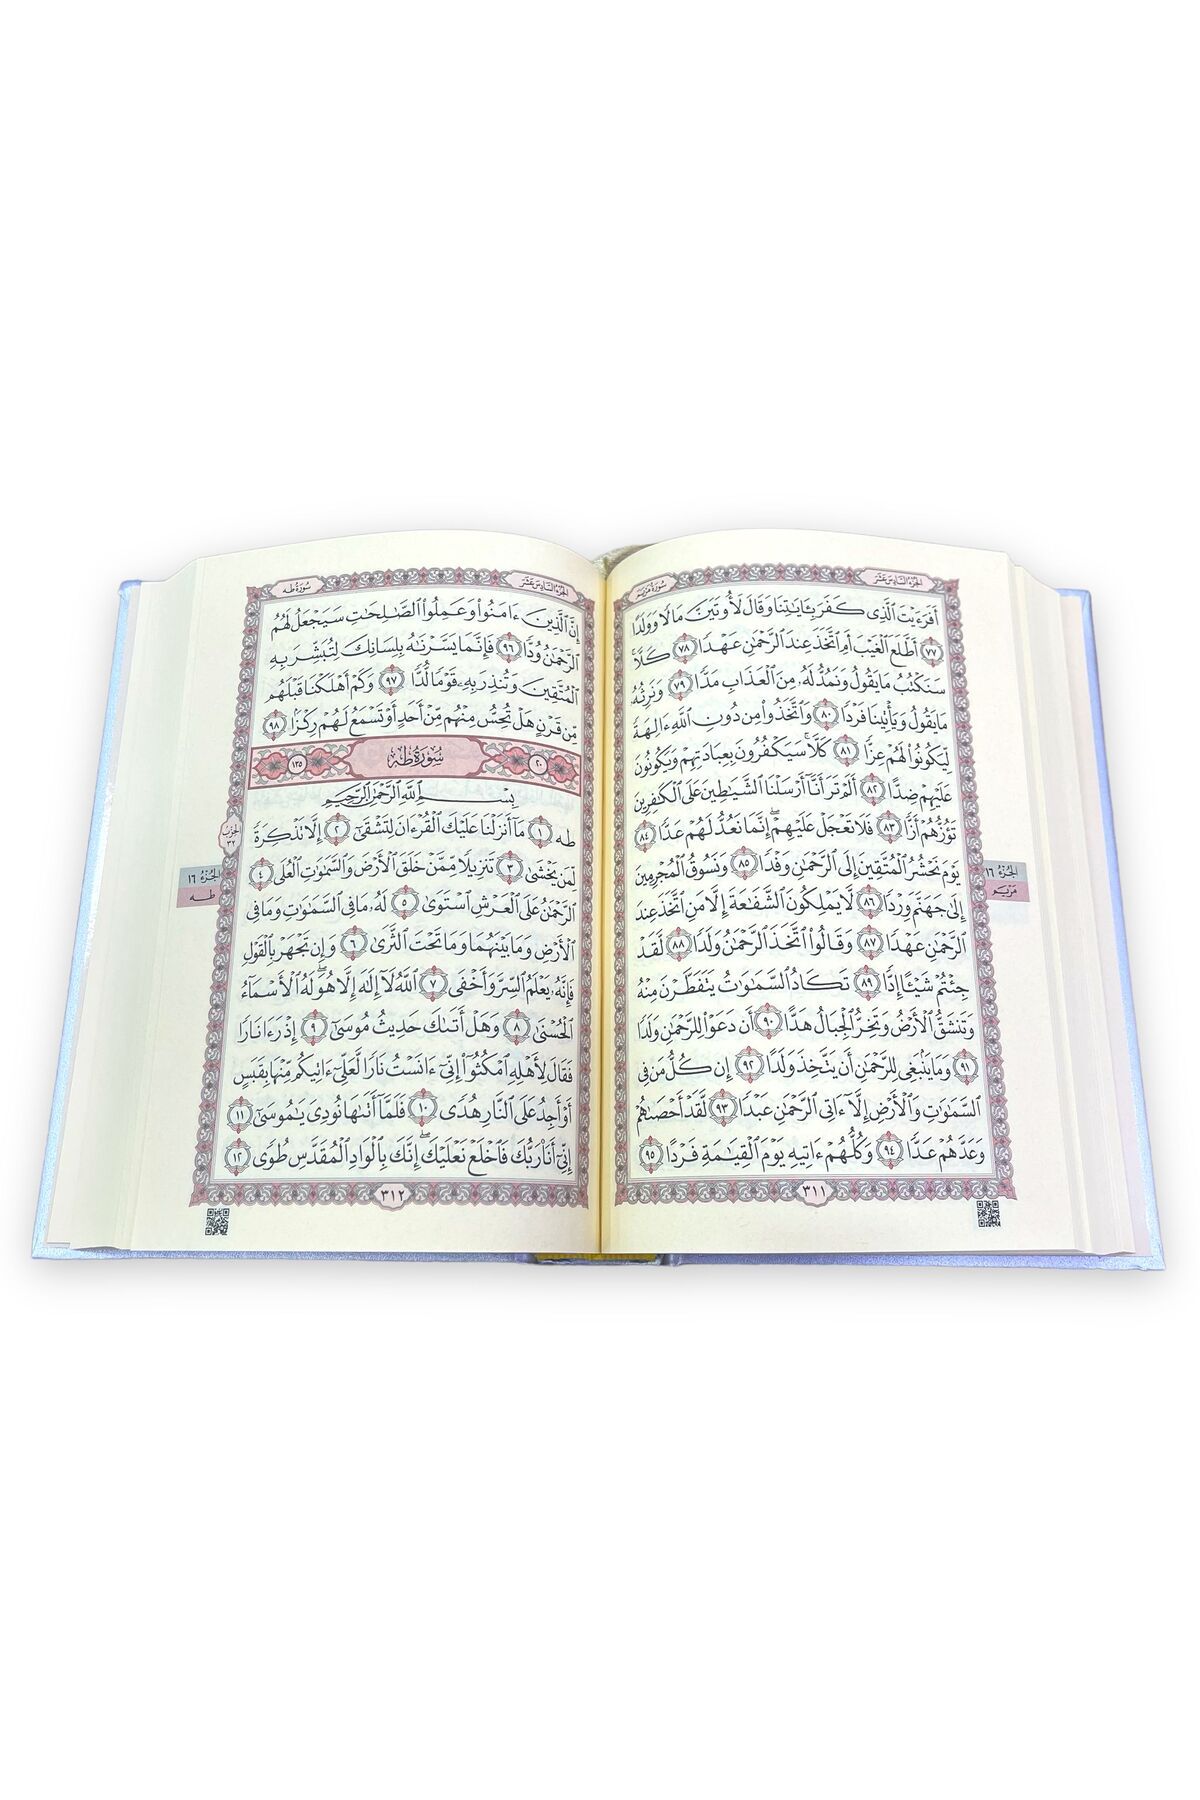 الجزء السادس عشر
سورة مريم
أَفَرَءَيْتَ ٱلَّذِى كَفَرَ بِـَٔايَـٰتِنَا وَقَالَ لَأُوتَيَنَّ مَالًا وَوَلَدًا
٧٧ أَطَّلَعَ ٱلْغَيْبَ أَمِ ٱتَّخَذَ عِندَ ٱلرَّحْمَـٰنِ عَهْدًا ٧٨ كَلَّا
سَنَكْتُبُ مَا يَقُولُ وَنَمُدُّ لَهُۥ مِنَ ٱلْعَذَابِ مَدًّا ٧٩ وَنَرِثُهُۥ
مَا يَقُولُ وَيَأْتِينَا فَرْدًا ٨٠ وَٱتَّخَذُوا۟ مِن دُونِ ٱللَّهِ ءَالِهَةً
لِّيَكُونُوا۟ لَهُمْ عِزًّا ٨١ كَلَّا ۚ سَيَكْفُرُونَ بِعِبَادَتِهِمْ وَيَكُونُونَ
عَلَيْهِمْ ضِدًّا ٨٢ أَلَمْ تَرَ أَنَّآ أَرْسَلْنَا ٱلشَّيَـٰطِينَ عَلَى ٱلْكَـٰفِرِينَ
تَؤُزُّهُمْ أَزًّا ٨٣ فَلَا تَعْجَلْ عَلَيْهِمْ ۖ إِنَّمَا نَعُدُّ لَهُمْ عَدًّا ٨٤
يَوْمَ نَحْشُرُ ٱلْمُتَّقِينَ إِلَى ٱلرَّحْمَـٰنِ وَفْدًا ٨٥ وَنَسُوقُ ٱلْمُجْرِمِينَ
إِلَىٰ جَهَنَّمَ وِرْدًا ٨٦ لَّا يَمْلِكُونَ ٱلشَّفَـٰعَةَ إِلَّا مَنِ ٱتَّخَذَ عِندَ
ٱلرَّحْمَـٰنِ عَهْدًا ٨٧ وَقَالُوا۟ ٱتَّخَذَ ٱلرَّحْمَـٰنُ وَلَدًا ٨٨ لَّقَدْ
جِئْتُمْ شَيْـًٔا إِدًّا ٨٩ تَكَادُ ٱلسَّمَـٰوَٰتُ يَتَفَطَّرْنَ مِنْهُ
وَتَنشَقُّ ٱلْأَرْضُ وَتَخِرُّ ٱلْجِبَالُ هَدًّا ٩٠ أَن دَعَوْا۟ لِلرَّحْمَـٰنِ وَلَدًا
٩١ وَمَا يَنۢبَغِى لِلرَّحْمَـٰنِ أَن يَتَّخِذَ وَلَدًا ٩٢ إِن كُلُّ مَن فِى
ٱلسَّمَـٰوَٰتِ وَٱلْأَرْضِ إِلَّآ ءَاتِى ٱلرَّحْمَـٰنِ عَبْدًا ٩٣ لَّقَدْ أَحْصَىٰهُمْ
وَعَدَّهُمْ عَدًّا ٩٤ وَكُلُّهُمْ ءَاتِيهِ يَوْمَ ٱلْقِيَـٰمَةِ فَرْدًا ٩٥
٣١١
الجزء ١٦
مريم
الجزء السادس عشر
سورة طه
إِنَّ ٱلَّذِينَ ءَامَنُوا۟ وَعَمِلُوا۟ ٱلصَّـٰلِحَـٰتِ سَيَجْعَلُ لَهُمُ
ٱلرَّحْمَـٰنُ وُدًّا ٩٦ فَإِنَّمَا يَسَّرْنَـٰهُ بِلِسَانِكَ لِتُبَشِّرَ بِهِ
ٱلْمُتَّقِينَ وَتُنذِرَ بِهِۦ قَوْمًا لُّدًّا ٩٧ وَكَمْ أَهْلَكْنَا قَبْلَهُم
مِّن قَرْنٍ هَلْ تُحِسُّ مِنْهُم مِّنْ أَحَدٍ أَوْ تَسْمَعُ لَهُمْ رِكْزًۢا ٩٨
٢٠ سُورَةُ طه ١٣٥
بِسْمِ ٱللَّهِ ٱلرَّحْمَـٰنِ ٱلرَّحِيمِ
طه ١ مَآ أَنزَلْنَا عَلَيْكَ ٱلْقُرْءَانَ لِتَشْقَىٰٓ ٢ إِلَّا تَذْكِرَةً
لِّمَن يَخْشَىٰ ٣ تَنزِيلًا مِّمَّنْ خَلَقَ ٱلْأَرْضَ وَٱلسَّمَـٰوَٰتِ ٱلْعُلَى ٤
ٱلرَّحْمَـٰنُ عَلَى ٱلْعَرْشِ ٱسْتَوَىٰ ٥ لَهُۥ مَا فِى ٱلسَّمَـٰوَٰتِ وَمَا فِى
ٱلْأَرْضِ وَمَا بَيْنَهُمَا وَمَا تَحْتَ ٱلثَّرَىٰ ٦ وَإِن تَجْهَرْ بِٱلْقَوْلِ
فَإِنَّهُۥ يَعْلَمُ ٱلسِّرَّ وَأَخْفَى ٧ ٱللَّهُ لَآ إِلَـٰهَ إِلَّا هُوَ ۖ لَهُ ٱلْأَسْمَآءُ
ٱلْحُسْنَىٰ ٨ وَهَلْ أَتَىٰكَ حَدِيثُ مُوسَىٰٓ ٩ إِذْ رَءَا نَارًا
فَقَالَ لِأَهْلِهِ ٱمْكُثُوٓا۟ إِنِّىٓ ءَانَسْتُ نَارًا لَّعَلِّىٓ ءَاتِيكُم مِّنْهَا بِقَبَسٍ
أَوْ أَجِدُ عَلَى ٱلنَّارِ هُدًى ١٠ فَلَمَّآ أَتَىٰهَا نُودِىَ يَـٰمُوسَىٰٓ ١١
إِنِّىٓ أَنَا۠ رَبُّكَ فَٱخْلَعْ نَعْلَيْكَ ۖ إِنَّكَ بِٱلْوَادِ ٱلْمُقَدَّسِ طُوًى ١٢
٣١٢
الحزب
٣٢
الجزء ١٦
طه